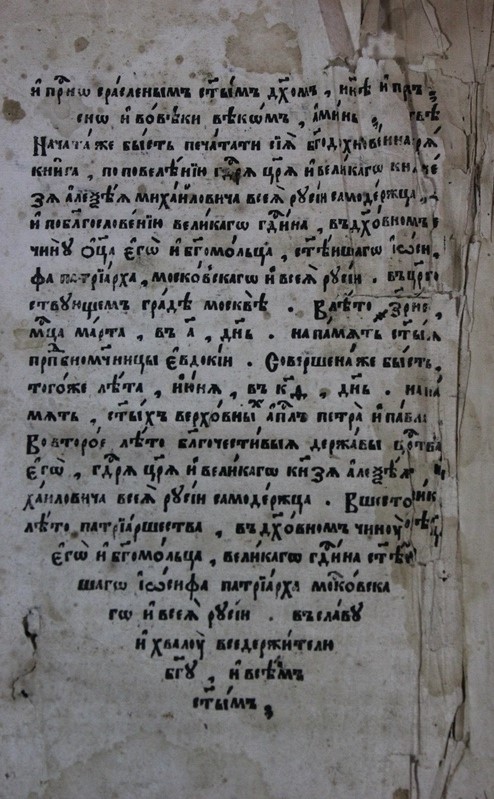 и҆ прⷭ҇нѡ сраслє́нымъ ст҃ы́мъ дх҃омъ , ны́нѣ и҆ прⷭ҇
сиѡ и҆ во́вѣ́ки вѣкѡ́мъ , а҆ми́нь .
Нача́та же бы́сть печа́тати сїѧ̀ бг҃одꙋхнове́ннаѧ
кни́га , по повелѣ́нїю гдⷭ҇рѧ цр҃ѧ̀ и҆ вели́кагѡ кнѧ́
зѧ а҆леѯѣ́ѧ миха́йловича всеѧ̀ рꙋсі́и самоде́ржца ,
и҆ по бл҃гослове́нїю вели́кагѡ гдⷭ҇и́на , въ дх҃о́вномъ
чи́нꙋ ѻ҆ц҃а̀ є҆гѡ̀ и҆ бг҃омо́льца , ст҃ѣ́йшагѡ і҆ѡ́си ,
фа патрїа́рха , моско́вскагѡ и҆ всеѧ̀ рꙋсі́и . въ црⷭ҇
ствꙋ́ющемъ гра́дѣ москвѣ̀ . В лѣ́то ҂зрнє ,
мцⷭ҇а ма́рта , въ а҃ , де́нь . на па́мѧть ст҃ы́ѧ
прпⷣбномч҃ницы є҆ѵдокі́и . Соверше́на же бы́сть ,
тогѡ́же лѣ́та , і҆ю́нѧ , въ к҃ѳ , де́нь . на па
мѧть , ст҃ы́хъ верхо́вныхъ а҆пⷭ҇лъ петра̀ и҆ па́вла
Во второ́е лѣ́то бл҃гочести́выѧ держа́вы црⷭ҇тва
є҆гѡ̀ , гдⷭ҇рѧ цр҃ѧ̀ и҆ вели́кагѡ кнѧ́зѧ а҆леѯѣ́ѧ
ха́иловича всеѧ̀ рꙋсі́и самоде́ржца . В шесто́
лѣ́то патрїа́ршества , въ дх҃о́вномъ чиноу̀ ѻ҆тц҃а̀
є҆гѡ̀ и҆ бг҃омо́льца , вели́кагѡ гдⷭ҇и́на ст҃ѣ́й
шагѡ і҆ѡ́сифа патрїа́рха моско́вска
гѡ и҆ всеѧ̀ рꙋсі́и . въ сла́вꙋ
и҆ хвалоу̀ вседержи́телю
бг҃ꙋ , и҆ всѣ́мъ
ст҃ы́мъ ,